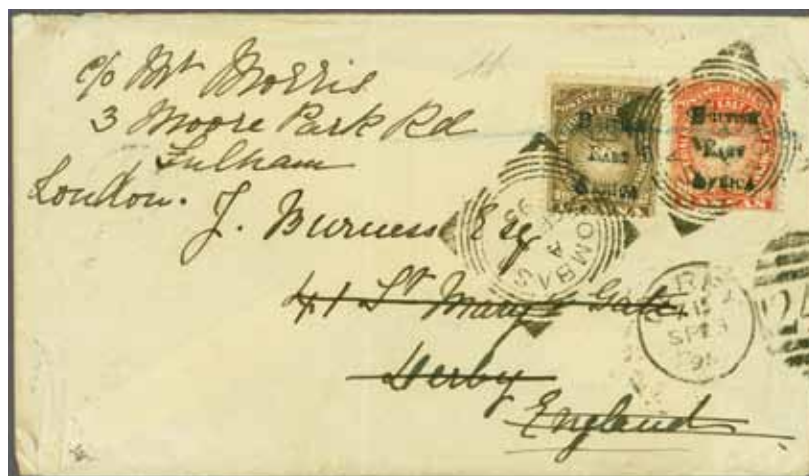 c/o Mr Morris
3 Moore Park Rd
Fulham
London.
J. Burness Esq
41 St Mary's Gate.
Derby
England
BRITISH
EAST
AFRICA
BRITISH
EAST
AFRICA
MOMBASA
SP
95